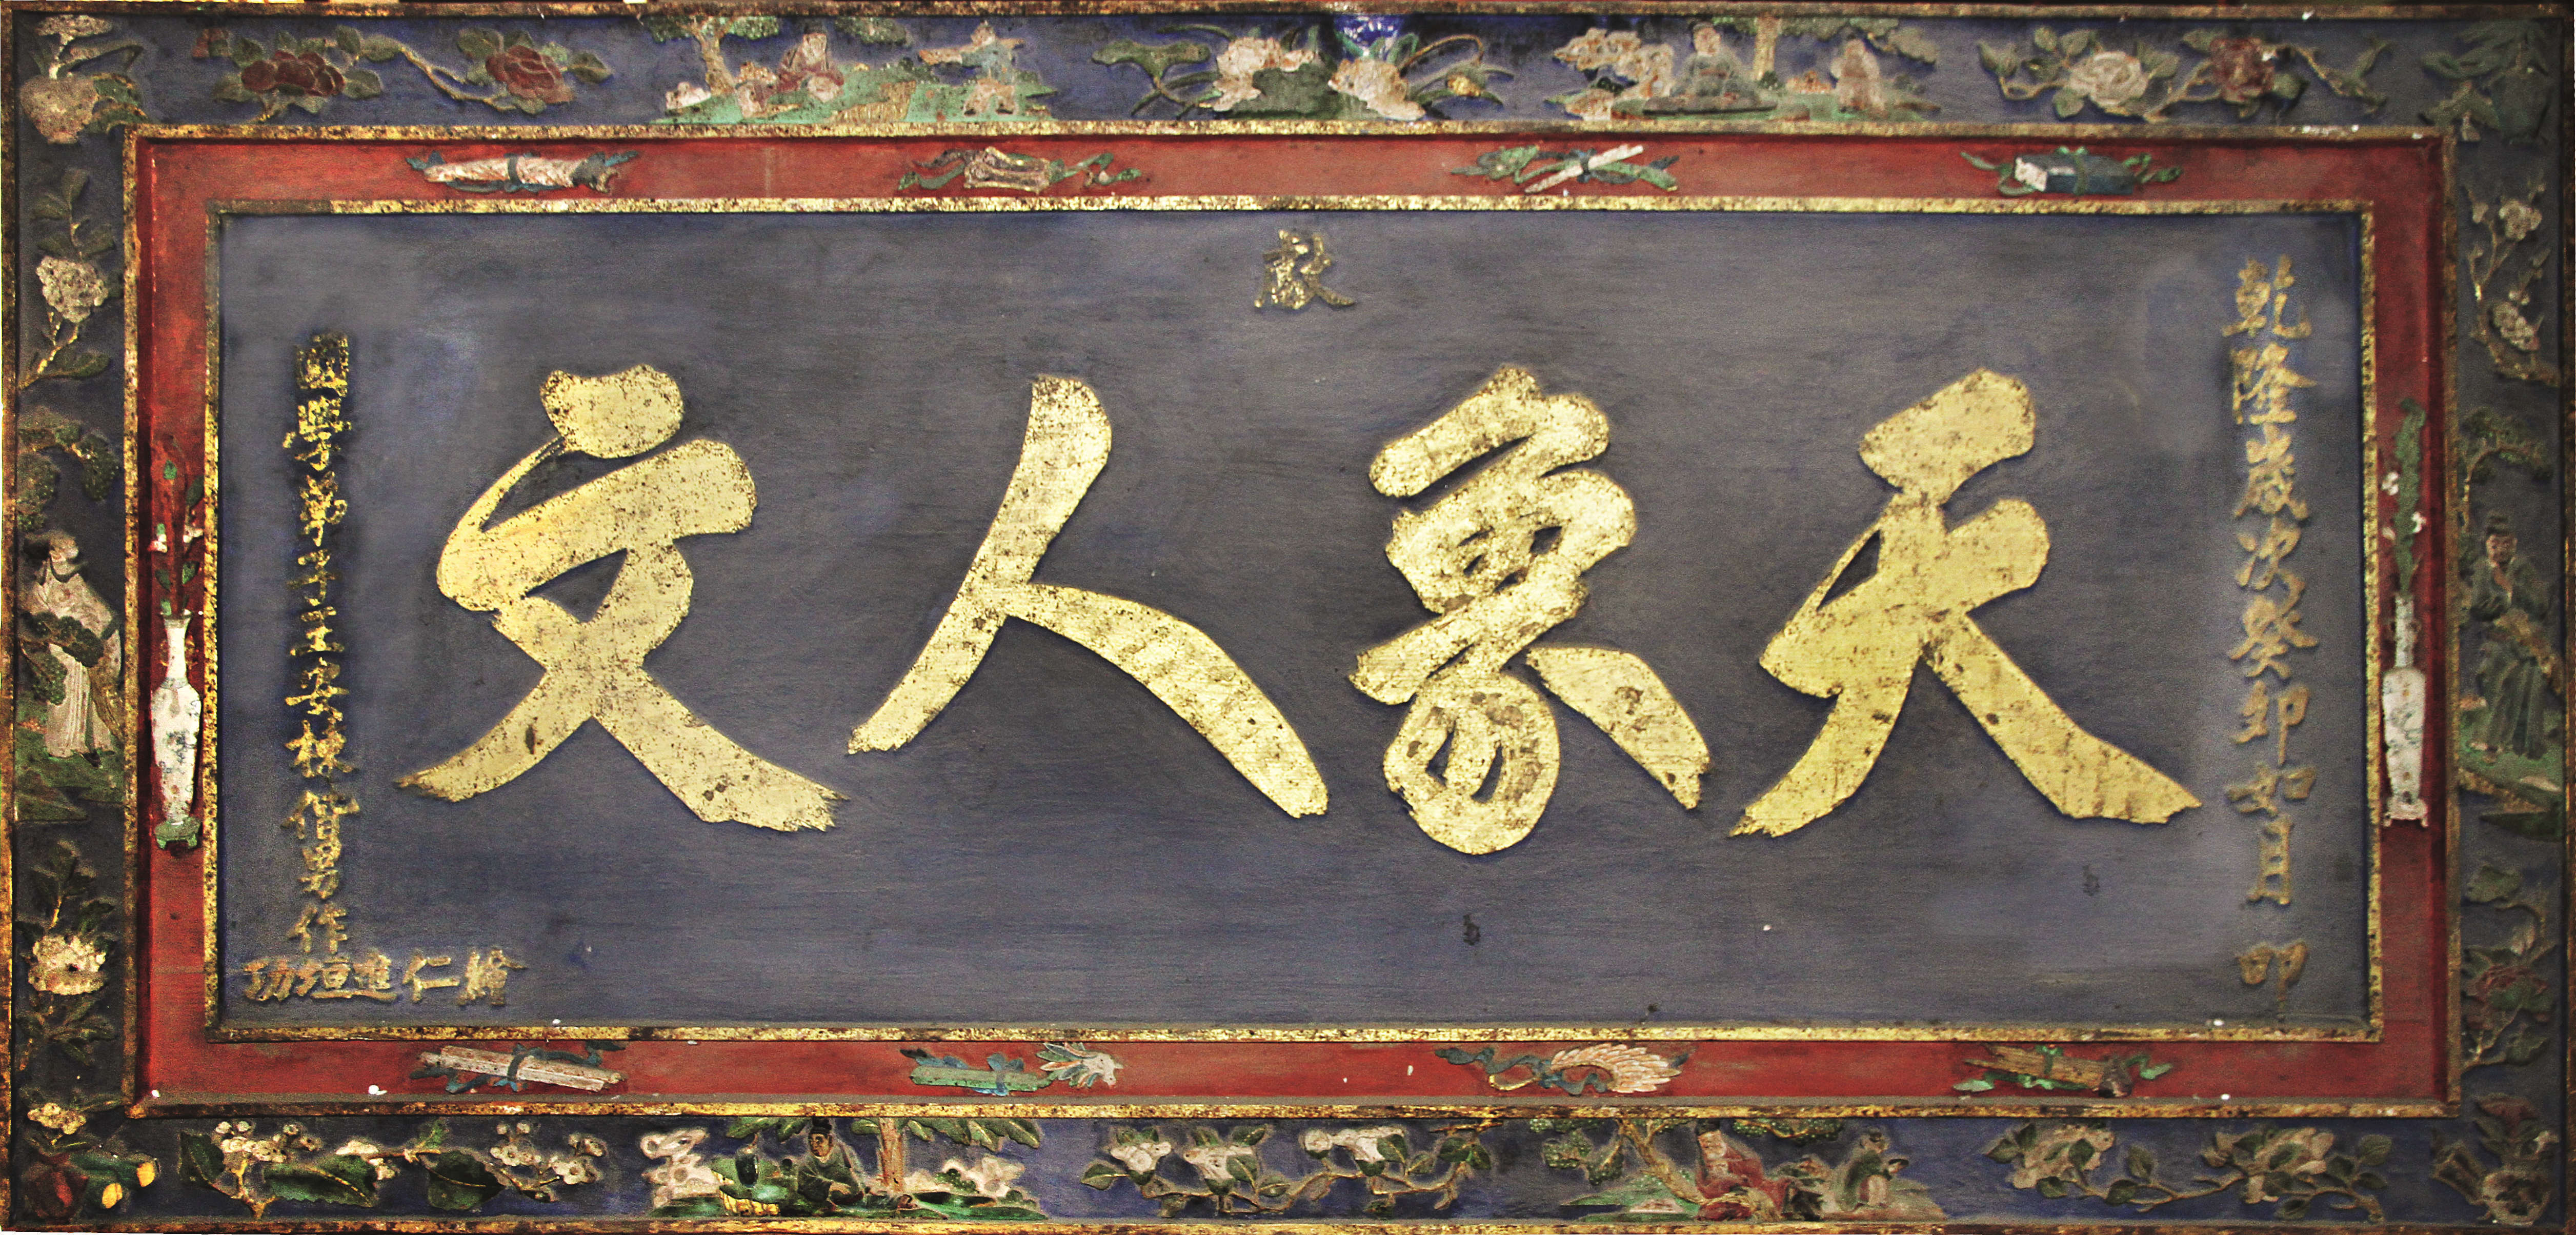 乾隆歲次癸卯如月 叩
天象人文
國學弟子王安棟偕男作
仁進垣功